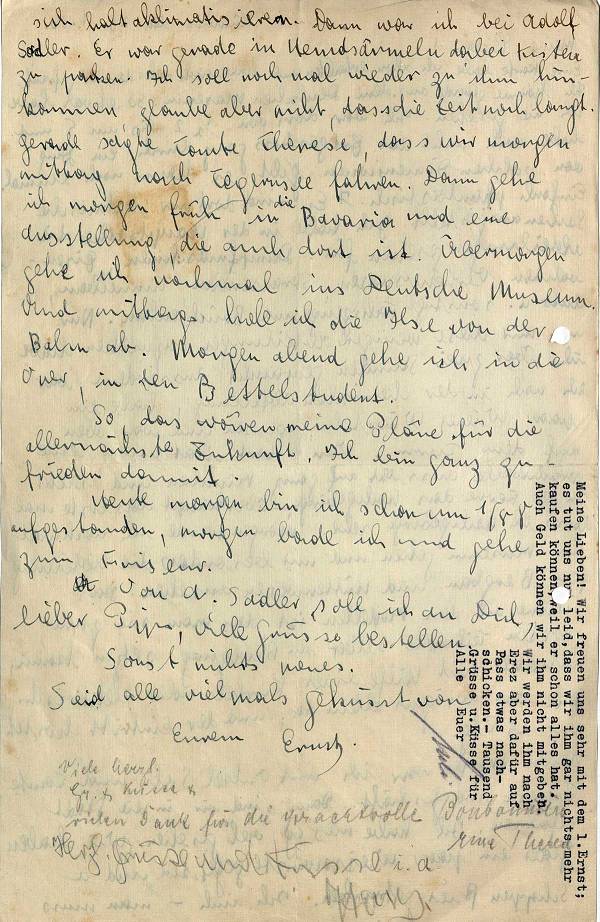 sich halt aklimatisieren. Dann war ich bei Adolf
Sadler. Er war gerade in Hemdsärmeln dabei Kisten
zu packen. Ich soll noch mal wieder zu ihm hin-
kommen, glaube aber nicht, dass die Zeit noch langt.
gerade sagte Tante Therese, dass wir morgen
mittag nach Tegernsee fahren. Dann gehe
ich morgen früh in die Bavaria und eine
Ausstellung, die auch dort ist. Übermorgen
gehe ich nochmal ins Deutsche Museum.
Und mittags hole ich die Ilse von der
Bahn ab. Morgen abend gehe ich in die
Oper, in den Bettelstudent.
So, das wären meine Pläne für die
allernächste Zukunft. Ich bin ganz zu-
frieden damit.
Heute morgen bin ich schon um 1/2 8
aufgestanden, morgen bade ich und gehe
zum Friseur.
Von A. Sadler soll ich an Dich,
lieber Pips, viele Grüsse bestellen.
Sonst nichts neues.
Seid alle vielmals geküsst von
Eurem Ernst.
Viele herzl.
Gr. & Küsse &
vielen Dank für die prachtvolle
Eure Therese
Herzl. Grüsse und Küsse i. a
Meine Lieben! Wir freuen uns sehr mit dem l.Ernst;
es tut uns nur leid,dass wir ihm gar nichts mehr
kaufen können,weil er schon alles hat.
Auch Geld können wir ihm nicht mitgeben.
Wir werden ihm nach
Erez aber dafür auf
Pass etwas nach-
schicken.- Tausend
Grüsse u.Küsse für
alle Euer